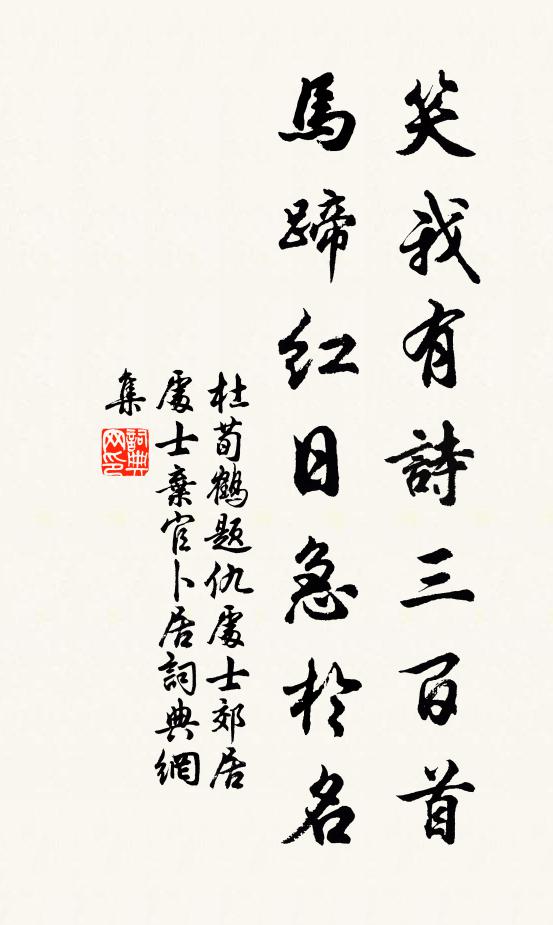 笑我有詩三百首
馬蹄紅日急於名
杜荀鶴題仇處士郊居
處士棄官卜居詞典網
集
詞典
网印